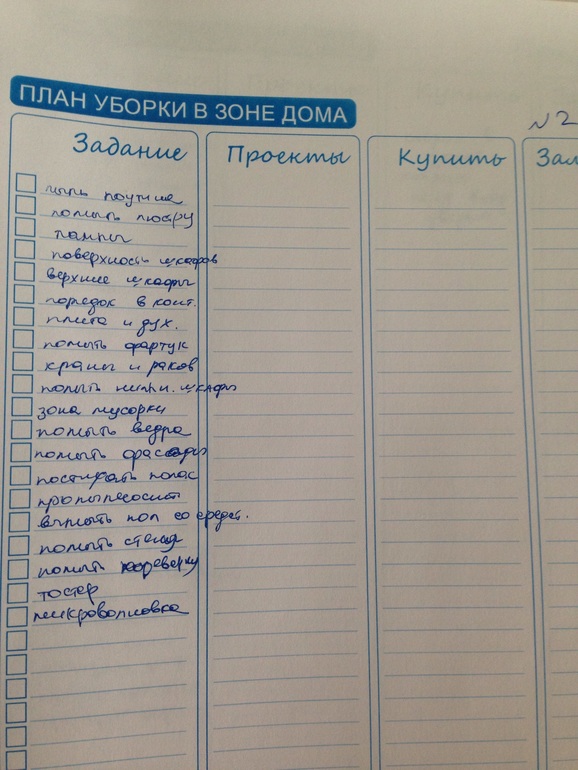 ПЛАН УБОРКИ В ЗОНЕ ДОМА
N2
Задание Проекты Купить Зам
пыль паутина
помыть люстру
лампы
поверхность шкафов
верхние шкафы
порядок в конт.
плита и дух.
помыть фартук
краны и раков
помыть нижн. шкафы
зона мусорки
помыть ведра
помыть фасады
постирать полас
пропылесосить
вымыть пол со средст.
помыть
помыть
тостер
микроволновка